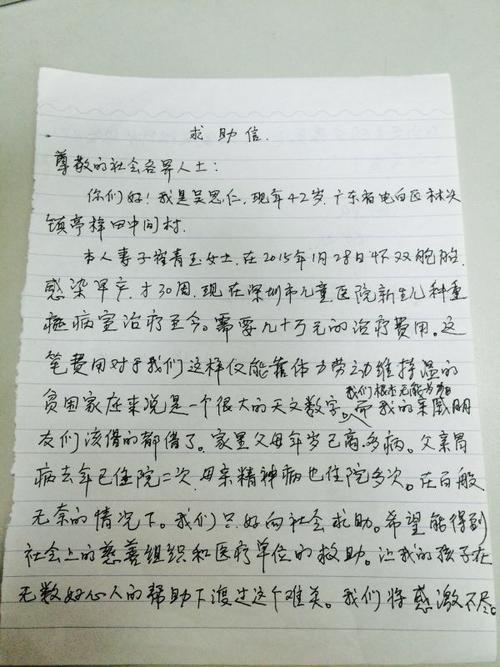 求助信.
尊敬的社会各界人士:
你们好!我是吴思仁,现年42岁.广东省电白区林头
镇亭梓田中间村.
本人妻子崔青玉女士.在2015年1月28日怀双胞胎.
感染早产,才30周.现在深圳市儿童医院新生儿科重
症病室治疗至今。需要几十万元的治疗费用。这
笔费用对于我们这样仅能靠体力劳动维持温的
我们根本无能为力
贫困家庭来说是一个很大的天文数字。而我的亲戚朋
友们该借的都借了。家里父母年岁已高,多病。父亲胃
病去年已住院二次,母亲精神病也住院多次。在百般
无奈的情况下。我们只好向社会求助。希望能得到
社会上的慈善组织和医疗单位的救助。让我的孩子在
无数好心人的帮助下渡过这个难关。我们将感激不尽。